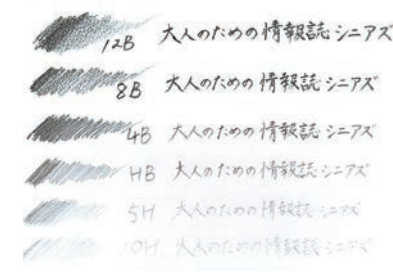 12B 大人のための情報誌シニアズ
8B 大人のための情報誌シニアズ
4B 大人のための情報誌シニアズ
HB 大人のための情報誌シニアズ
5H 大人のための情報誌シニアズ
10H 大人のための情報誌シニアズ